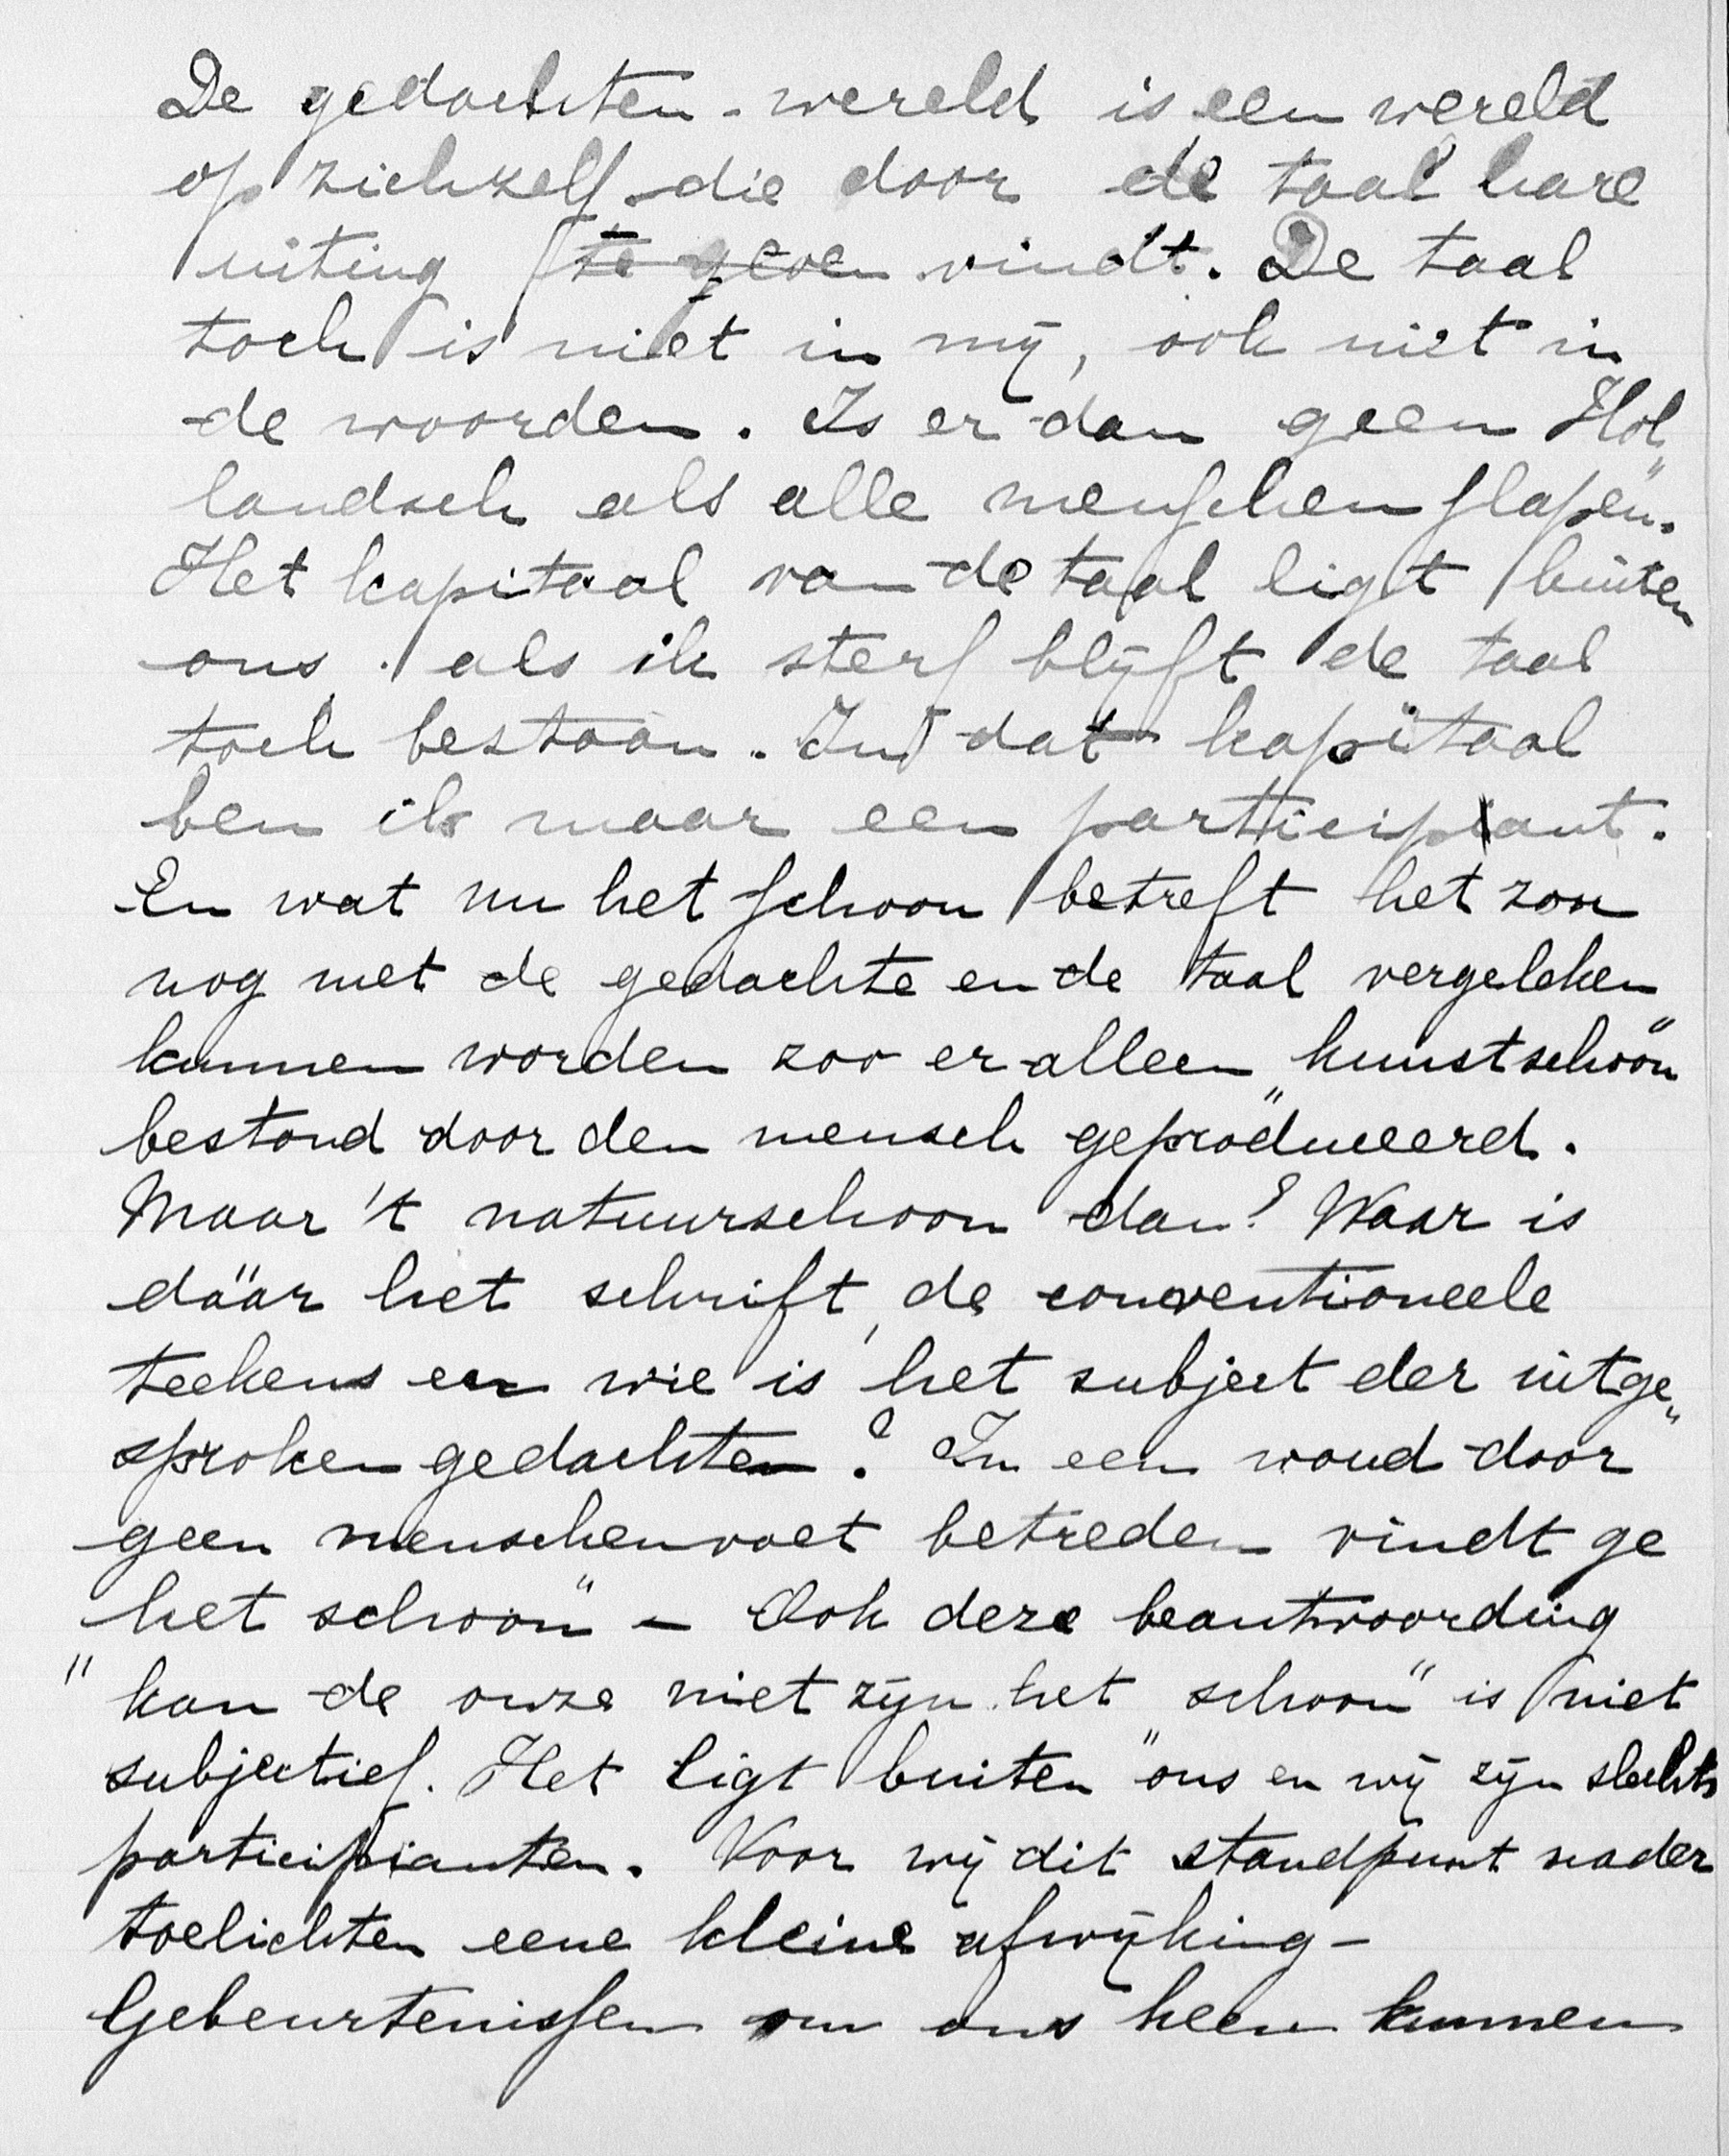 De gedachten-wereld is een wereld
op zichzelf die door de taal hare
uiting te geven vindt. De taal
toch is niet in mij, ook niet in
de woorden. Is er dan geen Hol„
landsch als alle menschen slapen.
Het kapitaal van de taal ligt buiten
ons. als ik sterf blijft de taal
toch bestaan. In dat kapitaal
ben ik maar een participiant.
En wat nu het schoon betreft het zou
nog met de gedachte en de taal vergeleken
kunnen worden zoo er alleen „kunstschoon"
bestond door den mensch geproduceerd.
Maar 't natuurschoon dan? Waar is
dáár het schrift, de conventioneele
teekens en wie is het subject der uitge„
sproken gedachten? In een woud door
geen menschenvoet betreden vindt ge
het schoon" - Ook deze beantwoording
" kan de onze niet zijn. het schoon" is niet
subjectief. Het ligt buiten "ons en wij zijn slechts
participianten. Voor wij dit standpunt nader
toelichten eene kleine afwijking -
Gebeurtenissen om ons heen kunnen